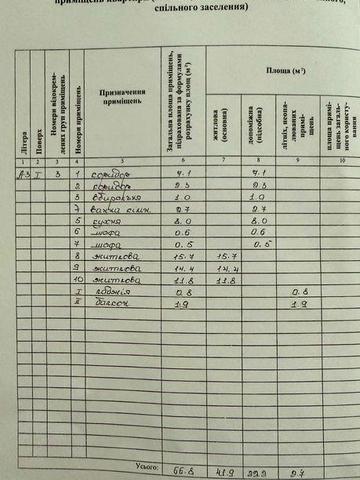 приміщень квартири
спільного заселення)
Літера
Поверх
Номери відокрем-
лених груп приміщень
Номери приміщень
Призначення
приміщень
Загальна площа приміщень,
підрахована за формулами
розрахунку площ (м²)
Площа (м²)
житлова
(основна)
допоміжна
(підсобна)
літніх, неопа-
люваних
примі-
щень
площа примі-
щень загаль-
ного користу-
вання
1 2 3 4 5 6 7 8 9 10
А-3 I 3 1 коридор 7.1 7.1
2 коридор 2.3 2.3
3 вбиральня 1.0 1.0
2.7 2.7
5 кухня 8.0 8.0
6 шафа 0.6 0.6
7 шафа 0.5 0.5
8 житлова 15.7 15.7
9 житлова 14.4 14.4
10 житлова 11.8 11.8
I лоджія 0.8 0.8
II балкон 1.9 1.9
Усього: 66.8 41.9 22.2 2.7